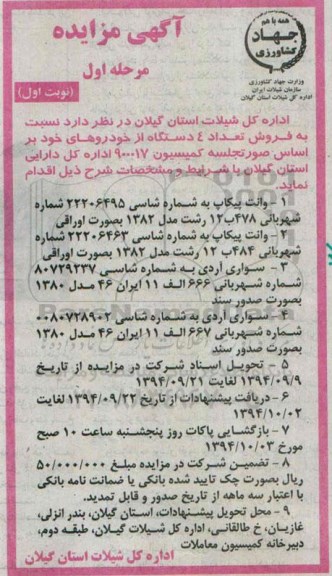 همه با هم
جهاد
کشاورزی
وزارت جهاد کشاورزی
سازمان شیلات ایران
اداره کل شیلات استان گیلان
آگهی مزایده
مرحله اول
(نوبت اول)
اداره کل شیلات استان گیلان در نظر دارد نسبت
به فروش تعداد ٤ دستگاه از خودروهای خود بر
اساس صورتجلسه کمیسیون ۹۰۰۱۷ اداره کل دارایی
استان گیلان با شرایط و مشخصات شرح ذیل اقدام
نماید.
۱ - وانت پیکاپ به شماره شاسی ۲۲۲۰۶۴۹۵ شماره
شهربانی ۴۷۸ب۱۲ رشت مدل ۱۳۸۲ بصورت اوراقی
۲ - وانت پیکاپ به شماره شاسی ۲۲۲۰۶۴۶۳ شماره
شهربانی ۴۸۴ب ۱۲ رشت مدل ۱۳۸۲ بصورت اوراقی
۳ - سواری آردی به شماره شاسی ۸۰۷۲۹۲۳۷
شماره شهربانی ۶۶۶ الف ۱۱ ایران ۴۶ مدل ۱۳۸۰
بصورت صدور سند
۴ - سواری آردی به شماره شاسی ۰۰۸۰۷۲۸۹۰۲
شماره شهربانی ۶۶۷ الف ۱۱ ایران ۴۶ مدل ۱۳۸۰
بصورت صدور سند
۵ - تحویل اسناد شرکت در مزایده از تاریخ
۱۳۹۴/۰۹/۹ لغایت ۱۳۹۴/۰۹/۲۱
۶ - دریافت پیشنهادات از تاریخ ۱۳۹۴/۰۹/۲۲ لغایت
۱۳۹۴/۱۰/۰۲
۷ - بازگشایی پاکات روز پنجشنبه ساعت ۱۰ صبح
مورخ ۱۳۹۴/۱۰/۰۳
۸ - تضمین شرکت در مزایده مبلغ ۵۰/۰۰۰/۰۰۰
ریال بصورت چک تایید شده بانکی یا ضمانت نامه بانکی
با اعتبار سه ماهه از تاریخ صدور و قابل تمدید.
۹ - محل تحویل پیشنهادات، استان گیلان، بندر انزلی،
غازیان، خ طالقانی، اداره کل شیلات گیلان، طبقه دوم،
دبیرخانه کمیسیون معاملات
اداره کل شیلات استان گیلان